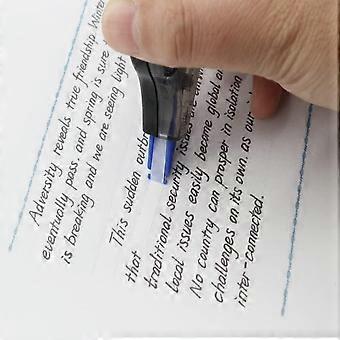 Adversity reveals true friendship Winter
eventually pass, and spring is sure
is breaking and we are seeing light
This sudden outbr
that
traditional security issues are
local issues easily become global an
No country can prosper in isolation
challenges on its own. as our
inter-connected.